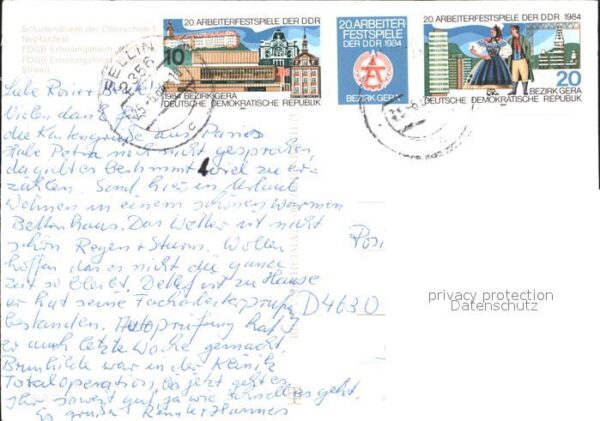 Schullandheim der Oberschule 1
Neptunfest
FDGB-Erholungsheim
FDGB-Erholungsheim
Strand
SELLIN
2356
10
20. ARBEITERFESTSPIELE DER DDR
1984 BEZIRK GERA
DEUTSCHE DEMOKRATISCHE REPUBLIK
20. ARBEITER
FESTSPIELE
DER DDR 1984
BEZIRK GERA
20. ARBEITERFESTSPIELE DER DDR 1984
20
BEZIRK GERA
DEUTSCHE DEMOKRATISCHE REPUBLIK
Liebe Rosi +
Vielen Dank für
die Kartengrüße aus
Habe Petra noch nicht gesprochen,
da gibt es bestimmt viel zu er-
zählen. Sind hier in Urlaub
wohnen in einem schönen warmen
Bettenhaus. Das Wetter ist nicht
schön Regen + Sturm. Wollen
hoffen das es nicht die ganze
Zeit so bleibt. Detlef ist zu Hause
er hat seine Facharbeiterprüfung
bestanden. Autoprüfung hat
er auch letzte Woche gemacht.
Brunhilde war in der Klinik
Totaloperation, bis jetzt geht es
ihr soweit gut, ja wie schnell es geht.
Es grüßen Renate + Hannes
Posi
D4630
privacy protection
Datenschutz